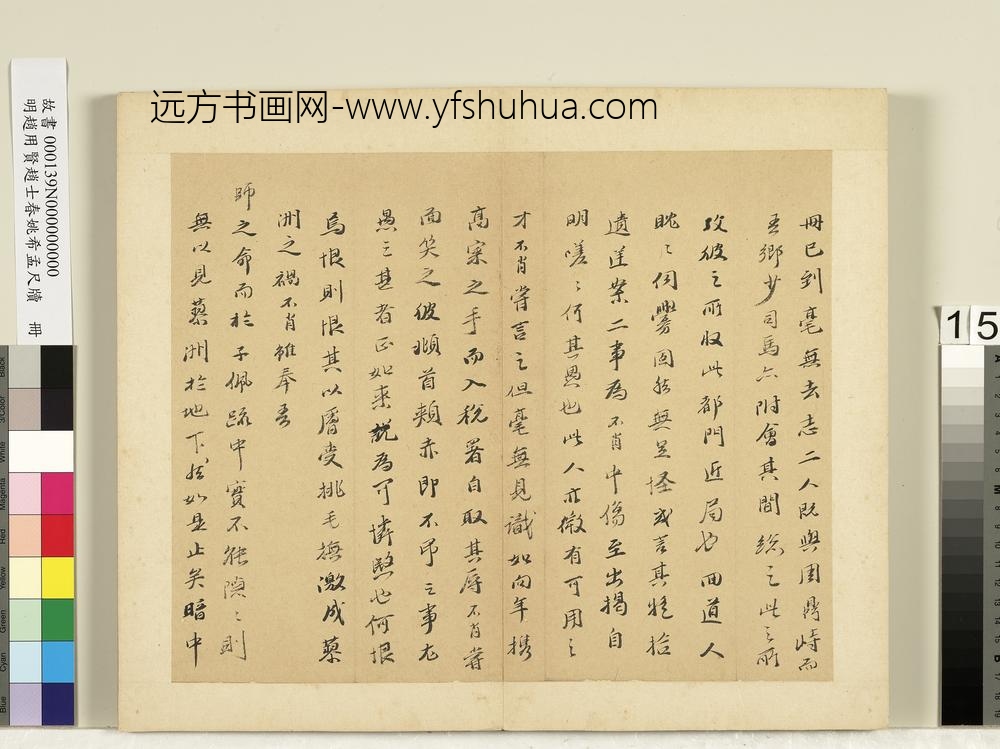 远方书画网-www.yfshuhua.com
故書 000139N000000000
明趙用賢趙士春姚希孟尺牘 冊
15
冊已到毫無去志二人既與周鼎峙而
吾鄉少司馬六附會其間總之此之所
攻彼之所收此都門近局也 回道人
眈〻伺釁固然無足怪或言其將拾
遺逆案二事為不肖中傷至出揭自
明嘆〻何其愚也此人亦微有可用之
才不肖嘗言之但毫無見識如向年攜
高寀之手而入稅署自取其辱不肖嘗
面笑之彼頫首頰赤即不平之事尤
愚之甚者正如來諭為可憐愍也何恨
焉恨則恨其以 受挑毛 激成蓼
洲之禍不肖雖奉吾
師之命而於子佩疏中實不能隱〻則
無以見蓼洲於地下然如是止矣暗中
Black
3/Color
White
Magenta
Red
Yellow
Green
Cyan
Blue